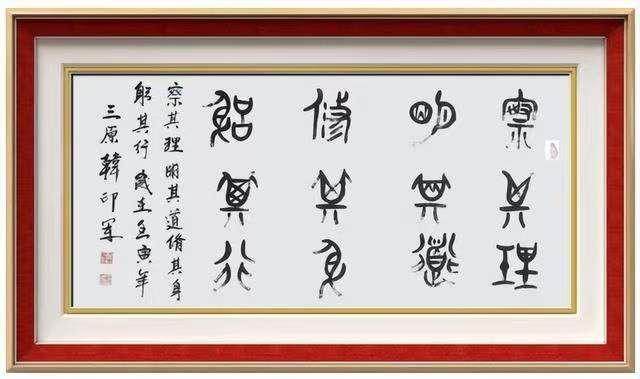 察其理
明其道
修其身
躬其行
察其理明其道脩其身
躬其行歲在壬寅年
三原韓印军